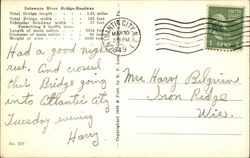 Delaware River Bridge-Roadway
Total Bridge length 1.81 miles
Total Bridge width 125 feet
Vehicular Roadway width 57 feet
Permitting 6 traffic lanes
Length of main cables
Diameter of main cables 30 inches
ATLANTIC CITY, N.J.
1949
1 CENT
Had a good night
rest. And crossed
this Bridge going
into Atlantic City
Tuesday evening
Harry
Mrs. Harry Pilgrim
Iron Ridge
Wis.